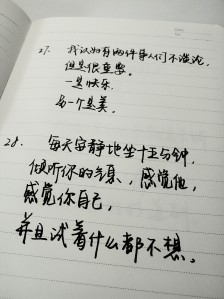 27. 我认为有两件事人们不谈论,
但是很重要。
一是快乐,
另一个是美。
28. 每天安静地坐十五分钟,
倾听你的气息,感觉他,
感觉你自己,
并且试着什么都不想。